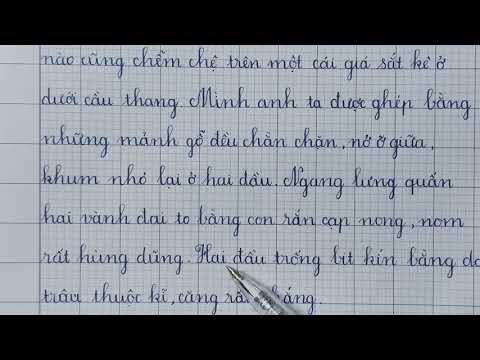 nào cũng chễm chệ trên một cái giá sắt kê ở
dưới cầu thang. Mình anh ta được ghép bằng
những mảnh gỗ đều chằn chặn, nở ở giữa,
khum nhỏ lại ở hai đầu. Ngang lưng quấn
hai vành đai to bằng con rắn cạp nong, nom
rất hùng dũng. Hai đầu trống bịt kín bằng da
trâu thuộc kĩ, căng